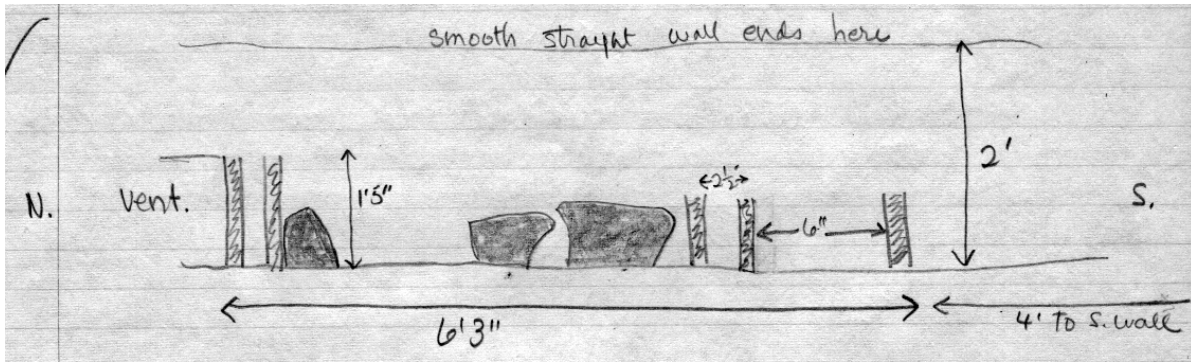 smooth straight wall ends here
2'
N.
Vent.
1'5"
2½"
6"
S.
6'3"
4' To S. wall